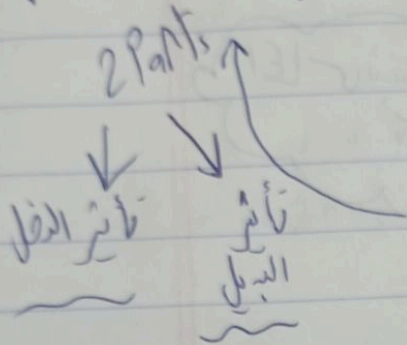 2 Parts
تأثير الدخل
تأثير
البديل